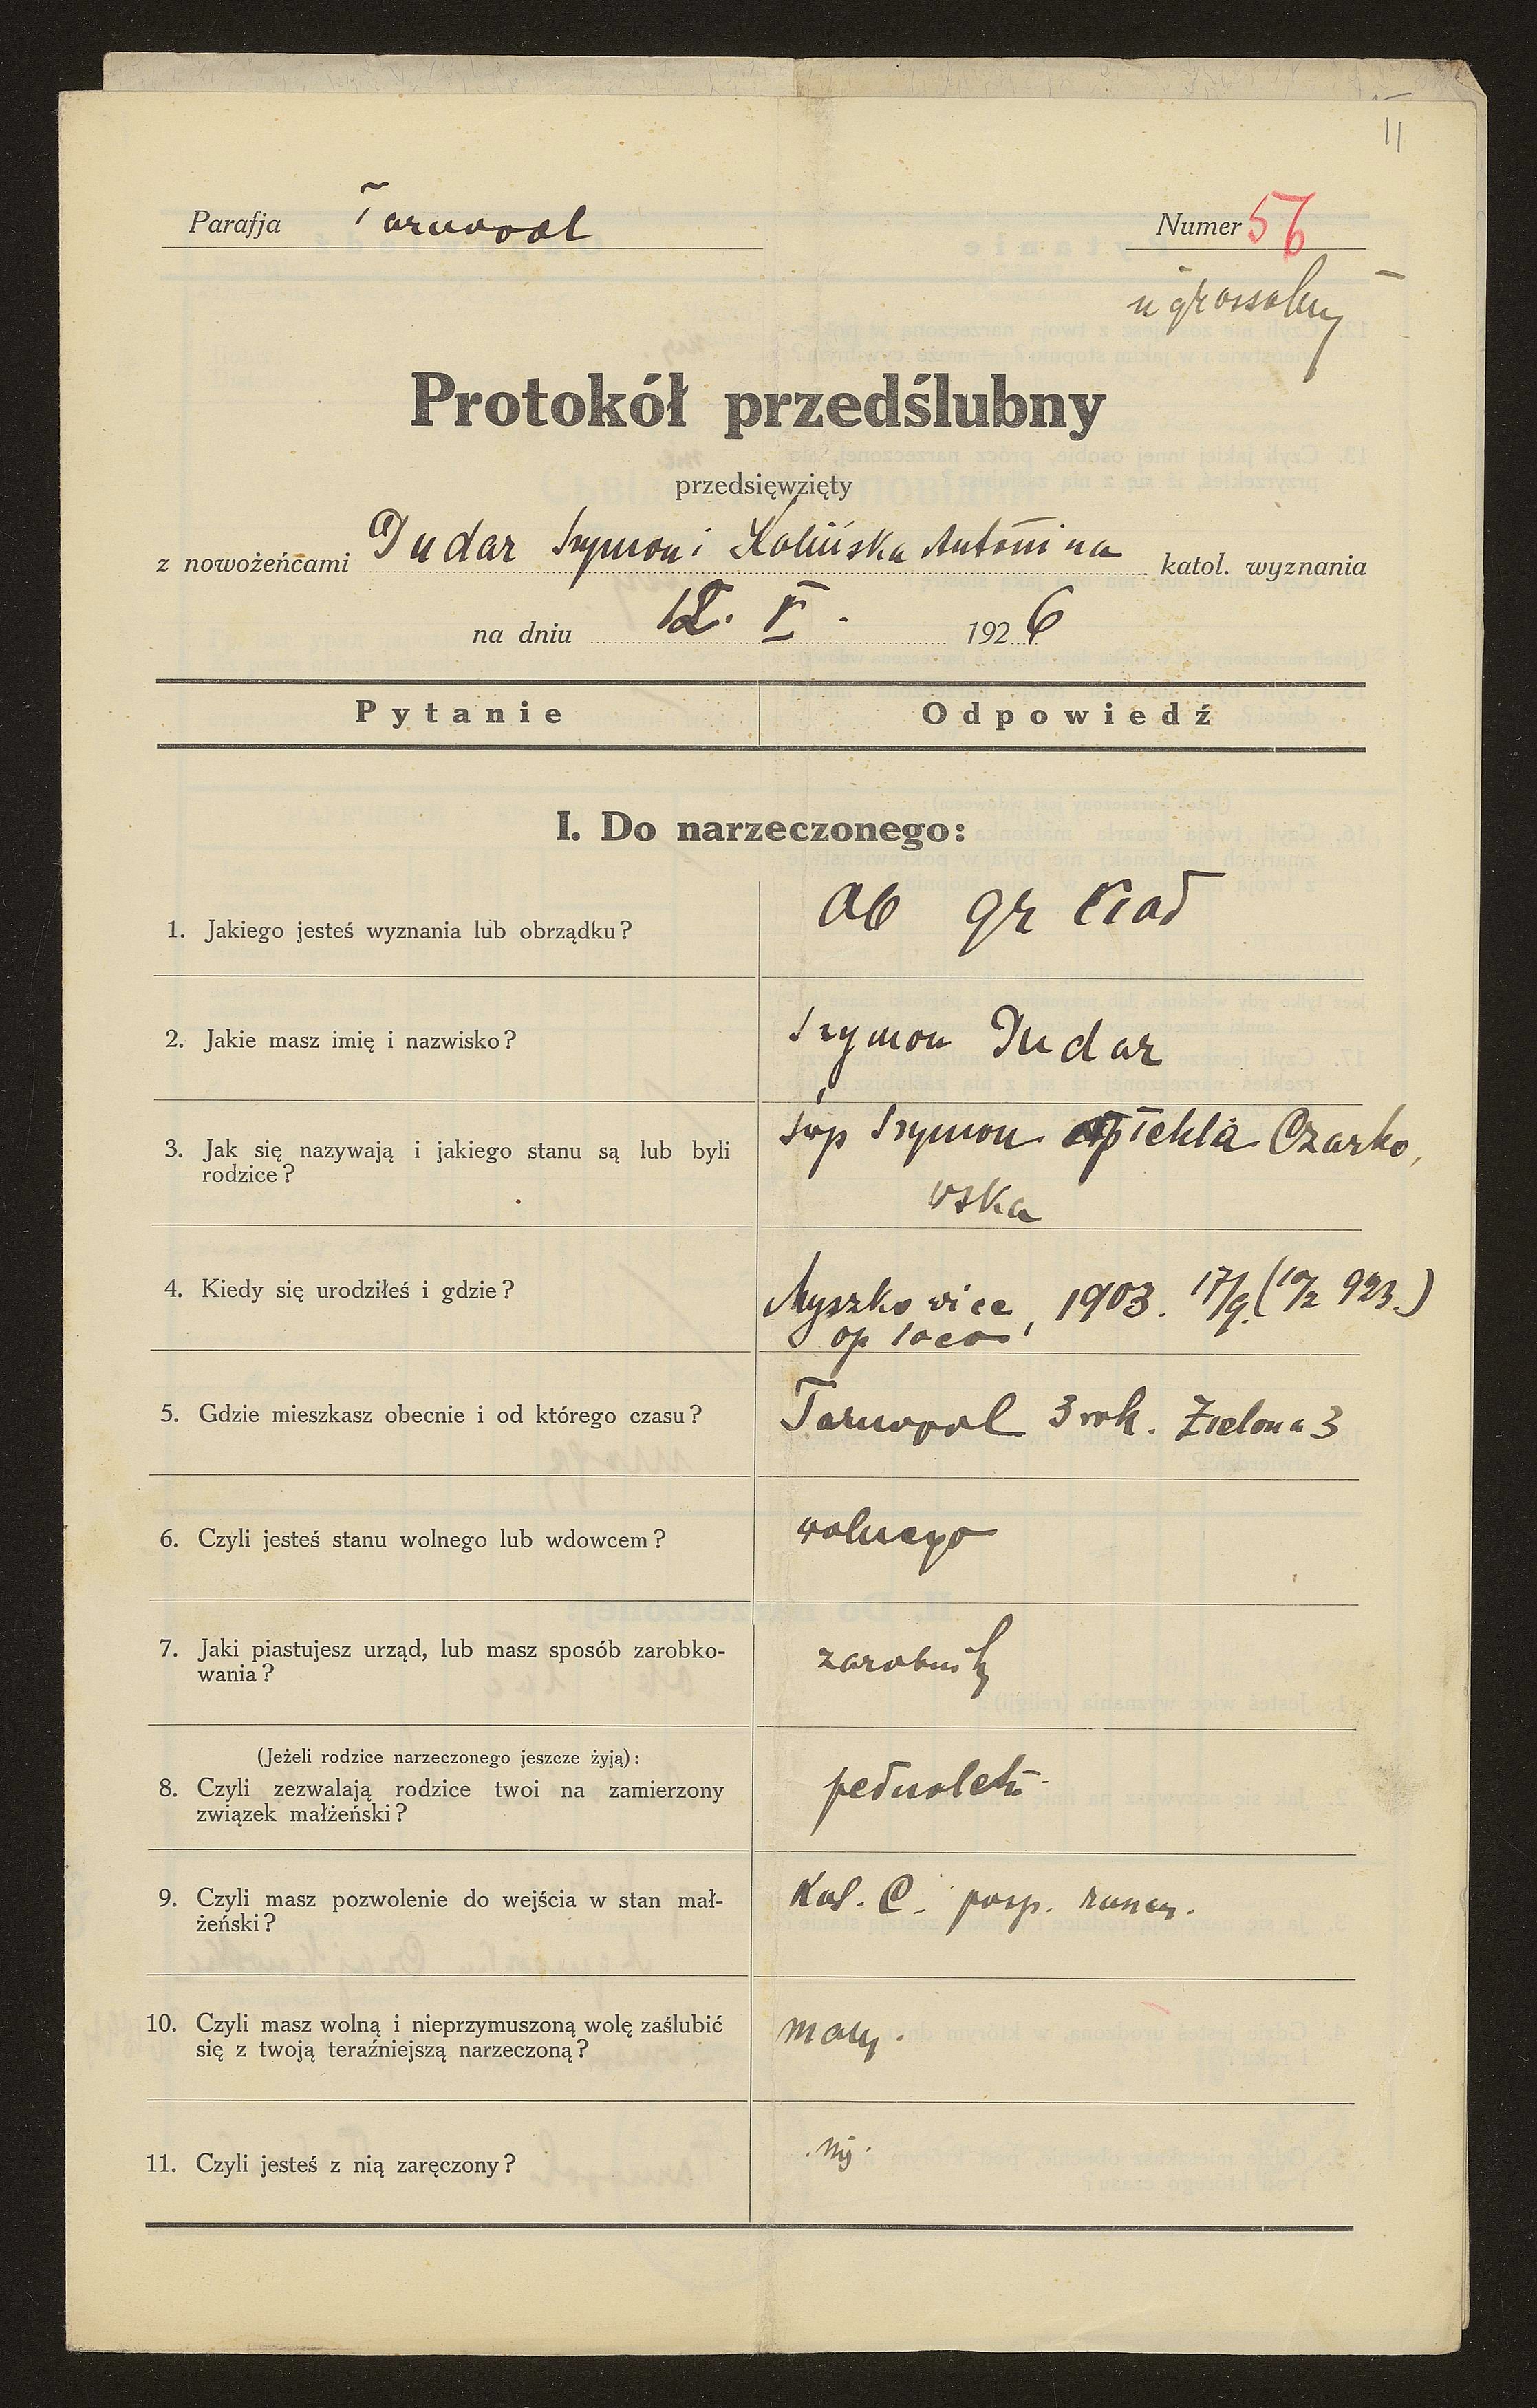 11
Parafja Tarnopol Numer 56
Protokół przedślubny
przedsięwzięty
z nowożeńcami Dudar Szymon i Kolińska Antonina katol. wyznania
na dniu 12. V. 1926
Pytanie Odpowiedź
I. Do narzeczonego:
1. Jakiego jesteś wyznania lub obrządku? ob gr
2. Jakie masz imię i nazwisko? Szymon Dudar
3. Jak się nazywają i jakiego stanu są lub byli
rodzice? śwp Szymon Tekla Czarko,
wska
4. Kiedy się urodziłeś i gdzie? Myszkowice, 1903. 17/9. (10/2 923.)
op loco
5. Gdzie mieszkasz obecnie i od którego czasu? Tarnopol 3 rok. Zielona 3
6. Czyli jesteś stanu wolnego lub wdowcem? wolnego
7. Jaki piastujesz urząd, lub masz sposób zarobko-
wania? zarobnik
(Jeżeli rodzice narzeczonego jeszcze żyją):
8. Czyli zezwalają rodzice twoi na zamierzony
związek małżeński? pełnoletni
9. Czyli masz pozwolenie do wejścia w stan mał-
żeński? Kat. C. posp. ruszen.
10. Czyli masz wolną i nieprzymuszoną wolę zaślubić
się z twoją teraźniejszą narzeczoną? mam.
11. Czyli jesteś z nią zaręczony?